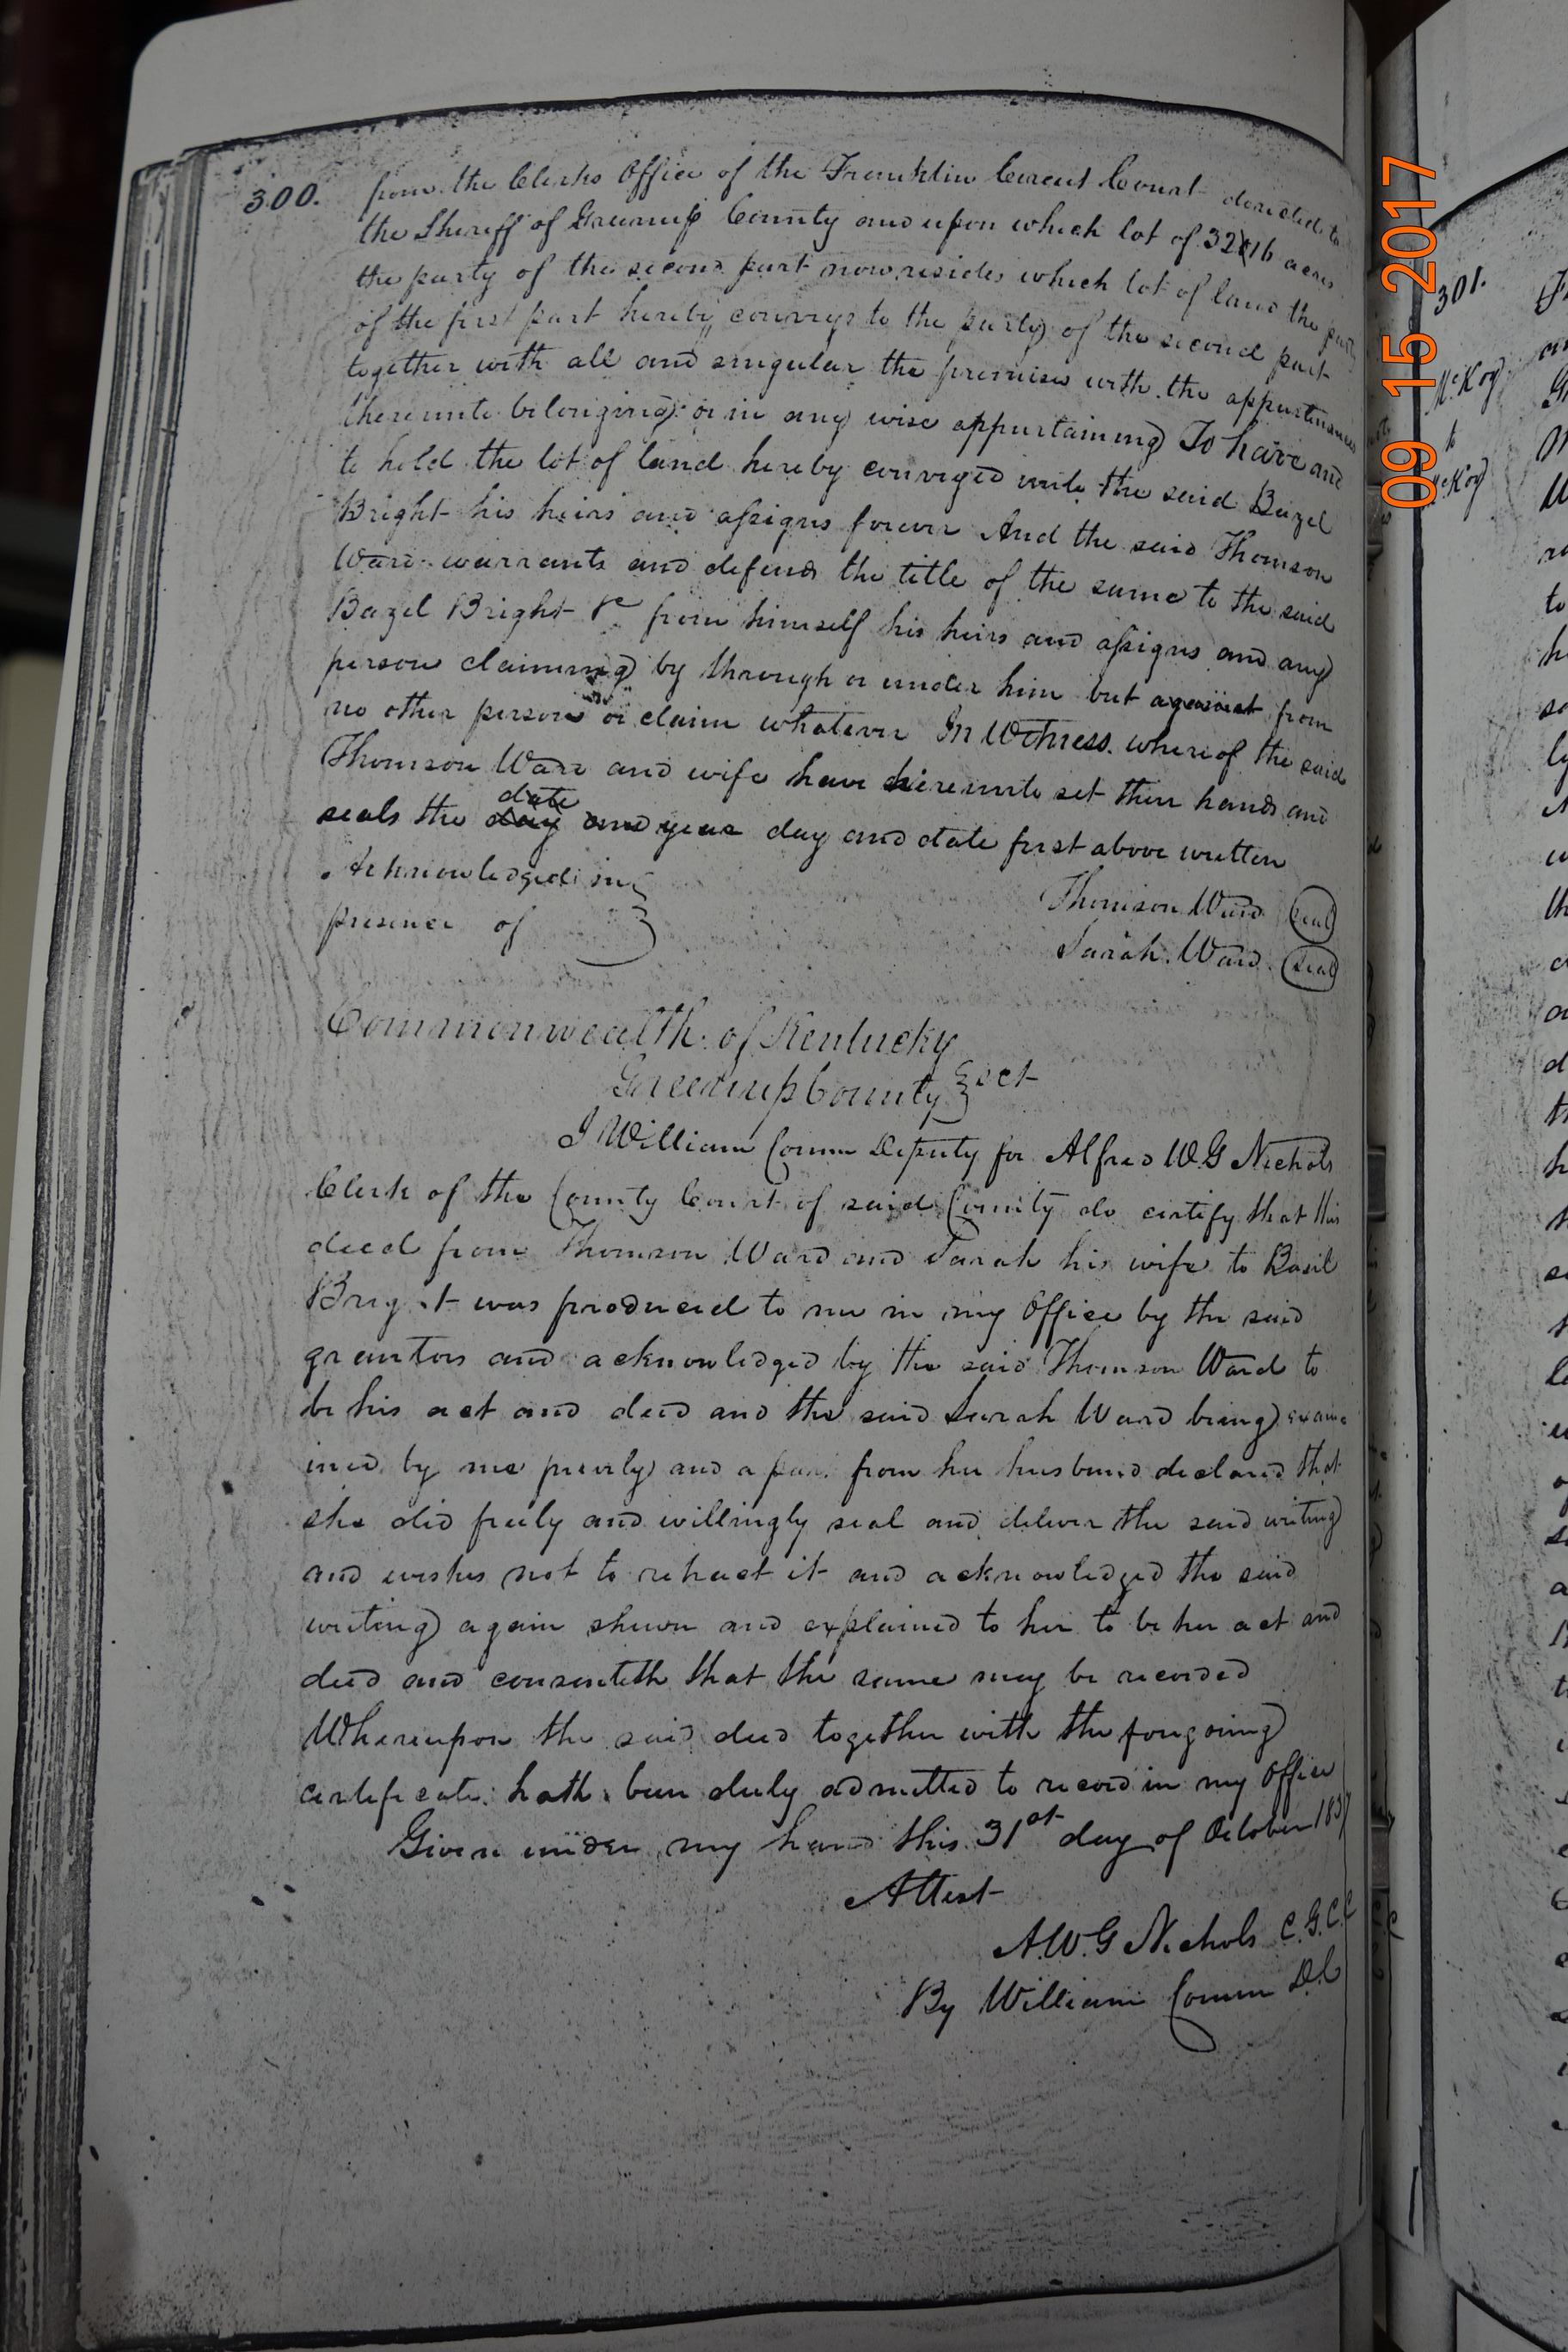 300.
from the Clerks Office of the Franklin Circuit Court directed to
the Sheriff of Greenup County and upon which lot of 3216 acres
the party of the second part now resides which lot of land the party
of the first part hereby conveys to the party of the second part
together with all and singular the premises with the appurtenances
thereunto belonging or in any wise appurtaining To have and
to hold the lot of land hereby conveyed unto the said Bazel
Bright his heirs and assigns forever And the said Thomson
Ward warrants and defends the title of the same to the said
Bazel Bright &c from himself his heirs and assigns and any
person claiming by through or under him but against from
no other person or claim whatever In Witness whereof the said
Thomson Ward and wife have hereunto set their hands and
date
seals the day and year day and date first above written
Acknowledged in
presence of
Thomson Ward (seal)
Sarah Ward (seal)
Commonwealth of Kentucky
Greenup County Sct
I William Corum Deputy for Alfred W.G Nichols
Clerk of the County Court of said County do certify that this
deed from Thomson Ward and Sarah his wife to Basil
Bright was produced to me in my Office by the said
grantors and acknowledged by the said Thomson Ward to
be his act and deed and the said Sarah Ward being exam
ined by me privily and apart from her husband declared that
she did freely and willingly seal and deliver the said writing
and wishes not to retract it and acknowledged the said
writing again shewn and explained to her to be her act and
deed and consenteth that the same may be recorded
Whereupon the said deed together with the foregoing
certificate hath been duly admitted to record in my Office
Given under my hand this 31st day of October 1837
Attest
A.W.G Nichols C.G.C.C
By William Corum D.C
09 15 2017
301.
McKoy
to
McKoy